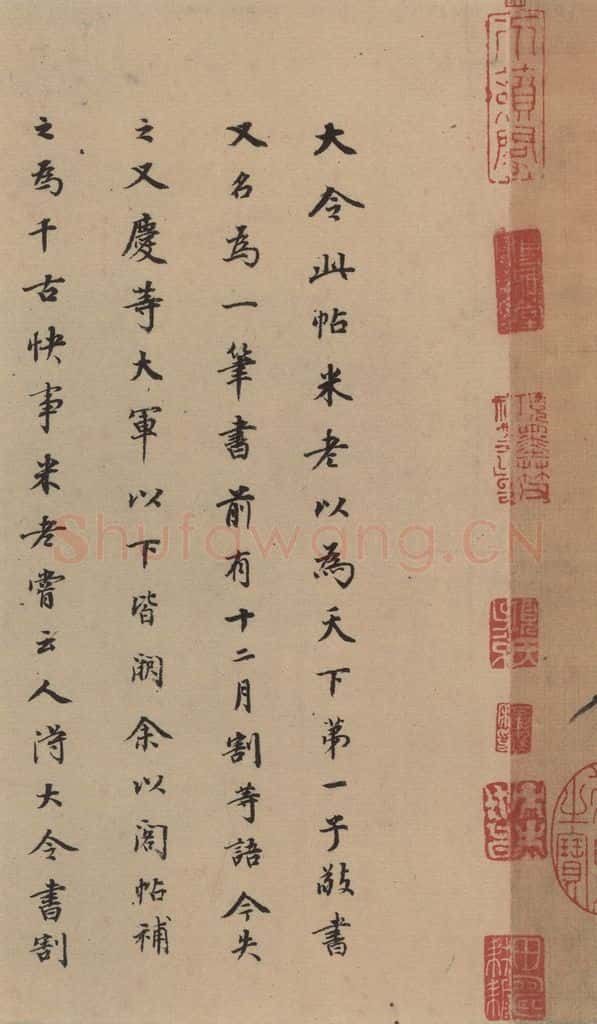 大令此帖米老以為天下第一子敬書
又名為一筆書前有十二月割等語今失
之又慶等大軍以下皆闕余以閣帖補
之為千古快事米老嘗云人得大令書割
Shufawang.CN